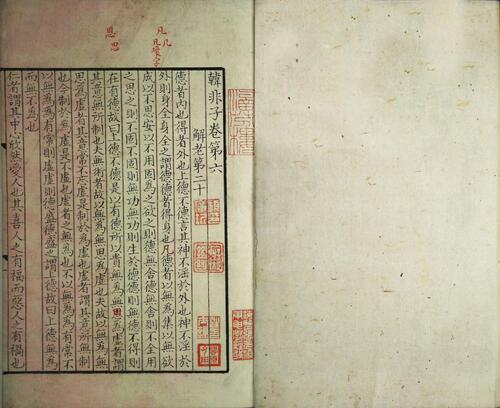 韓非子卷第六
解老第二十
德者內也得者外也上德不德言其神不淫於外也神不淫於
外則身全身全之謂德德者得身也凡德者以無為集以無欲
成以不思安以不用固為之欲之則德無舍德無舍則不全用
之思之則不固不固則無功無功則生於德德則無德不得則
在有德故曰上德不德是以有德所以貴無為無思為虛者謂
其意無所制也夫無術者故以無為無思為虛也夫故以無為無
思為虛者其意常不忘虛是制於為虛也虛者謂其意所無制
也今制於為虛是不虛也虛者之無為也不以無為為有常不
以無為為有常則虛虛則德盛德盛之謂上德故曰上德無為
而無不為也
仁者謂其中心欣然愛人也其喜人之有福而惡人之有禍也
凡凡
恩思